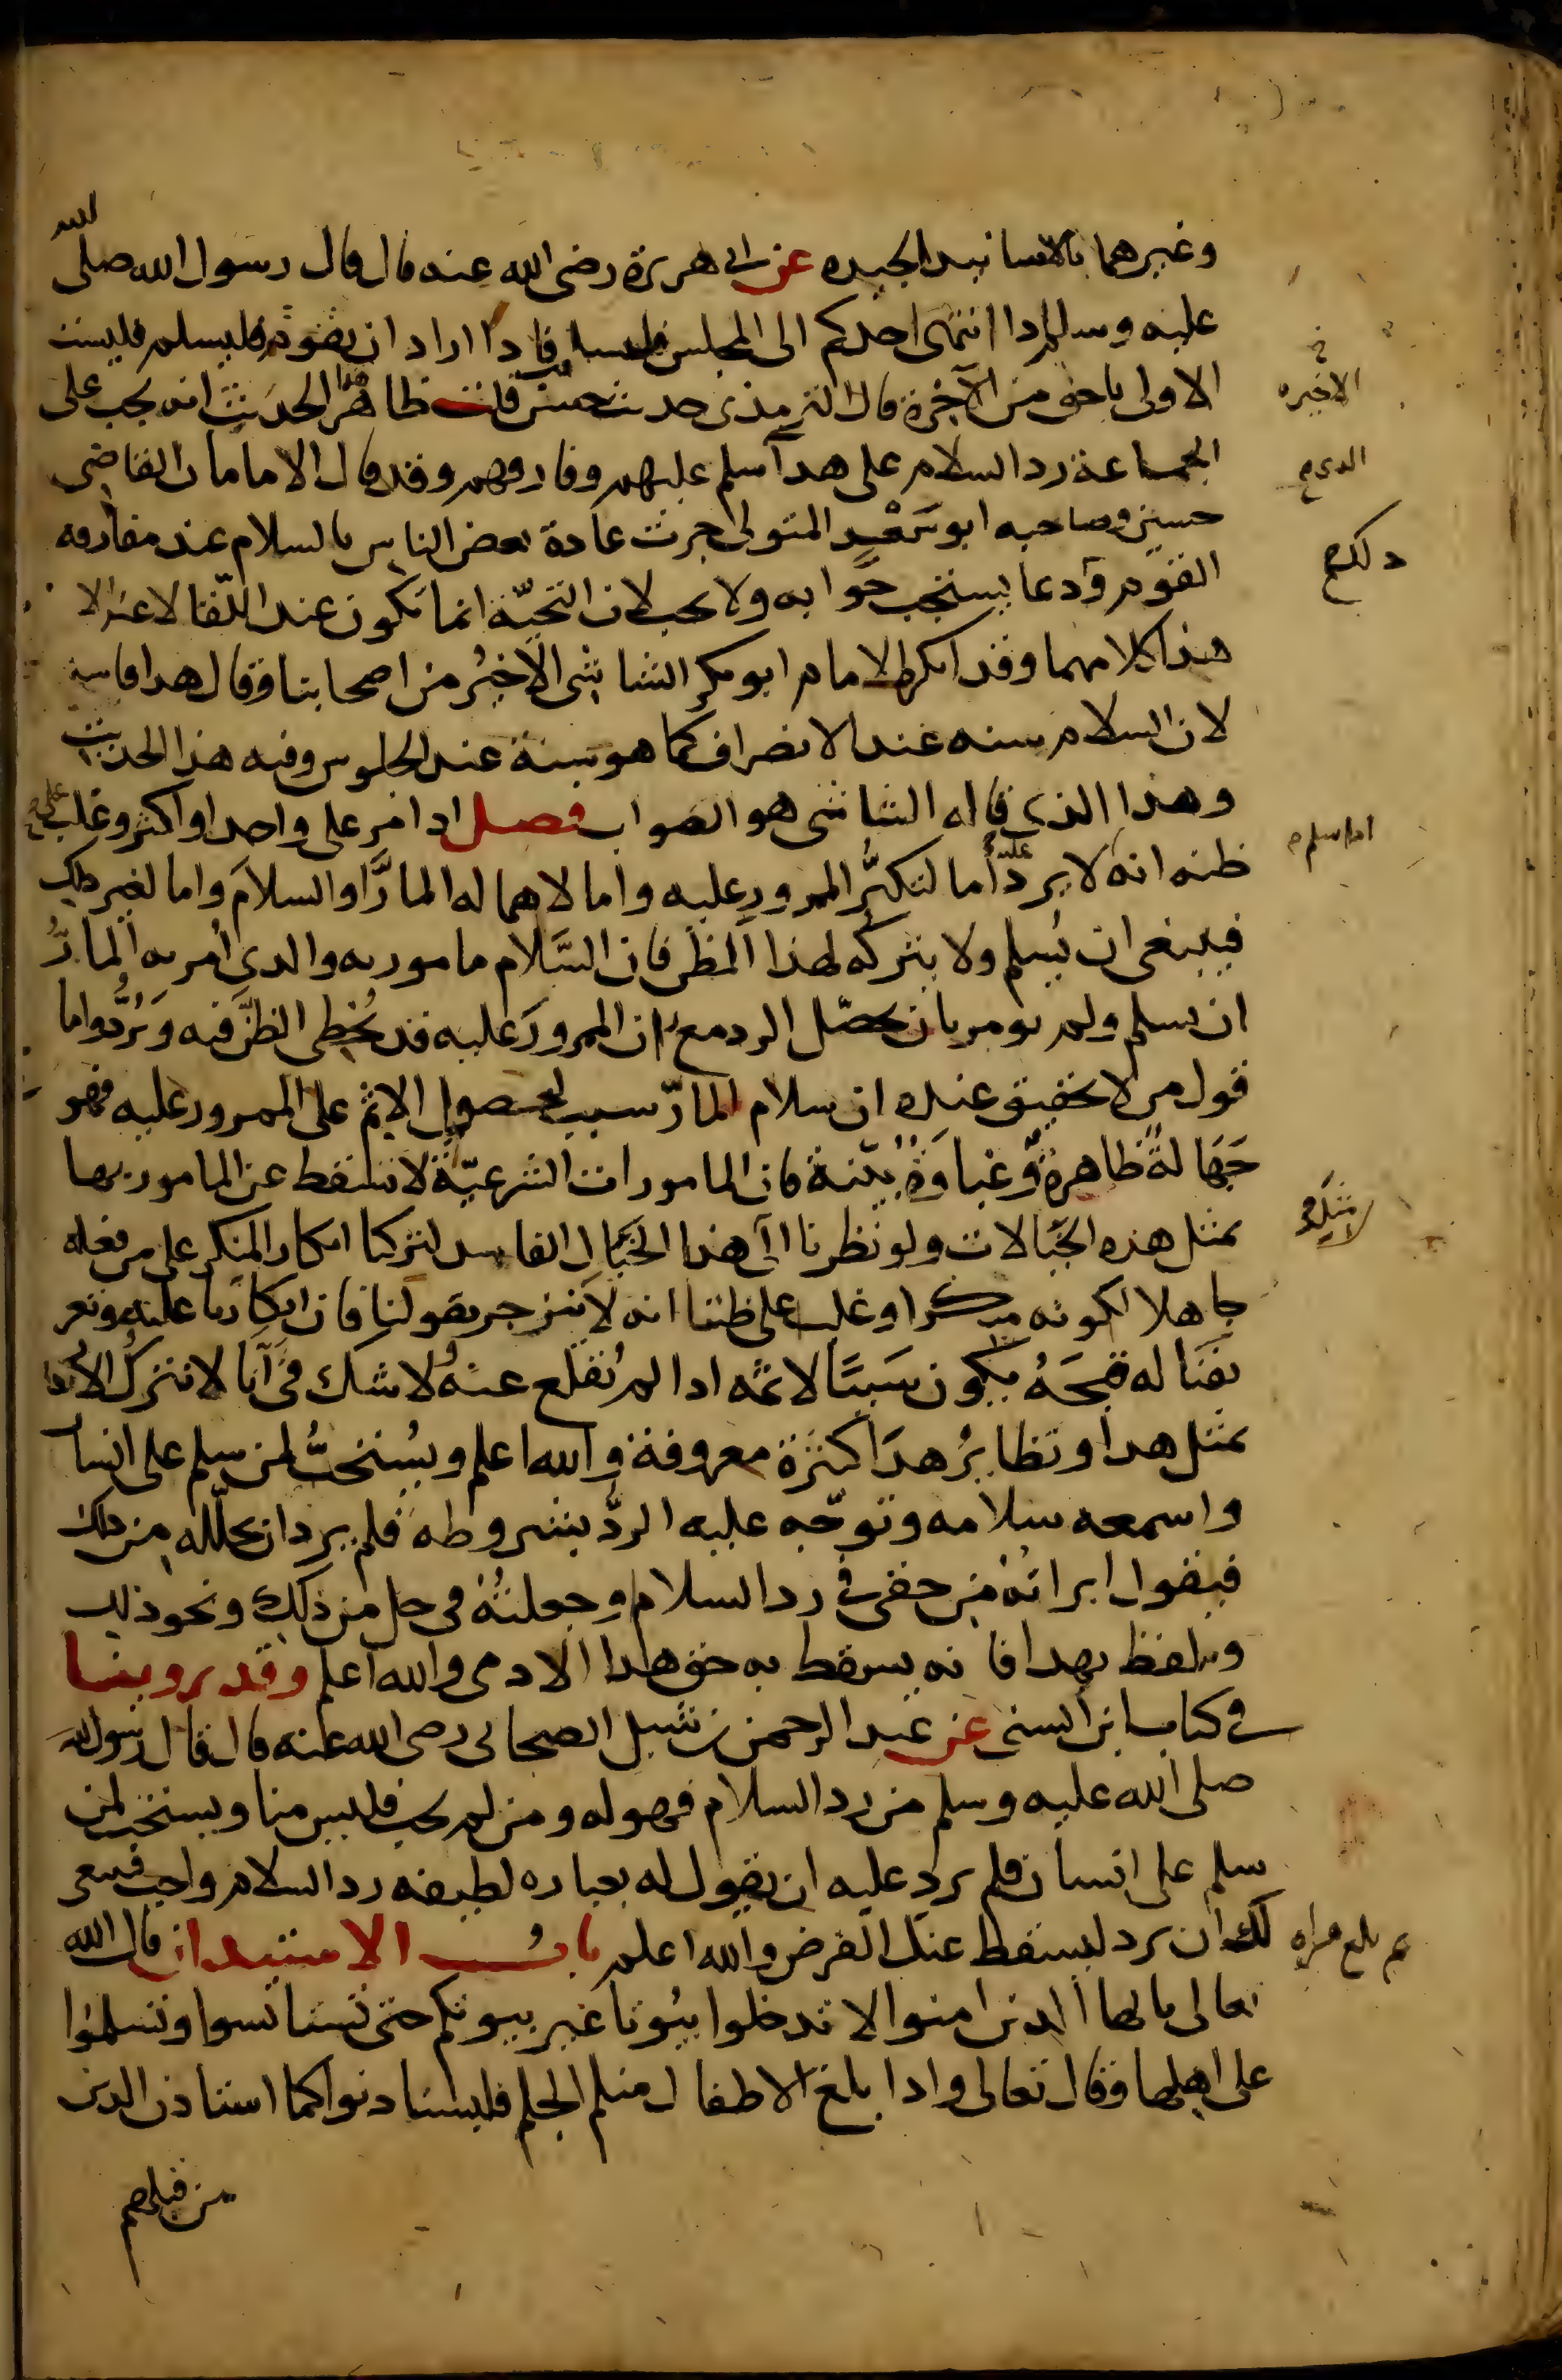 وغيرهما بالاسانيد الجيده عن ابي هريرة رضي الله عنه قال قال رسول الله صلى الله
عليه وسلم اذا انتهى احدكم الى المجلس فليسلم فاذا اراد ان يقوم فليسلم فليست
الاولى باحق من الآخرة قال الترمذي حديث حسن قلت ظاهر هذا الحديث انه يجب على
الاخيره
الجماعة رد السلام على هذا سلم عليهم وفارقهم وقد قال الامامان القاضي
الذي
حسين وصاحبه ابو سَعْدٍ المتولي جرت عادة بعض الناس بالسلام عند مفارقه
القوم وذلك دعا يستحب جوابه ولا يجب لان التحيّة انما تكون عند اللّقا لا عند الا
ذلك صح
هذا كلامهما وقد انكره الامام ابو بكر الشاشي الاخيرُ من اصحابنا وقال هذا فاسد
لان السلام سنه عند الانصراف كما هو سنة عند الجلوس وفيه هذا الحديث
وهذا الذي قاله الشاشي هو الصواب فصل اذا مر على واحد او اكثر وغلب على
ظنه انه لا يرد عليه اما لتكبُّر الممرور عليه واما لاهماله المارَّ او السلامَ واما لغير ذلك
اذا سلم
فينبغي ان يُسلم ولا يتركه لهذا الظن فان السَّلام مامور به والذي اُمر به المارُّ
ان يسلم ولم يومر بان يحصّل الرد مع ان الممرورَ عليه قد يُخطي الظنّ فيه وَيَرُدُّ واما
قول من لا تحقيق عنده ان سلام المارّ سبب لحصول الاثم على الممرور عليه فهو
جَهَالةٌ ظاهرةٌ وغباوَةٌ بيّنة فان المامورات الشرعيّة لا تسقط عن المامور بها
بمثل هذه الخيالات ولو نظرنا الى هذا الخيال الفاسد لتركنا انكار المنكر على من فعله
جاهلا لكونه منكرا وغلب على ظننا انه لا ينزجر بقولنا فان انكارنا عليه وتعر
يفَنَا له قبحَهُ يكون سَببًا لاثمه اذا لم يُقلع عنهُ ولا شك في أنا لا نترك الانكار
بمثل هذا ونظايرُ هذَا كثيرة معروفة والله اعلم ويُستحبُّ لمن سلم على انسان
واسمعه سلامه وتوجّه عليه الردُّ بشروطه فلم يرد ان يحلّله من ذلك
فيقول ابراتهُ من حقي في رد السلام او جعلتهُ في حل من ذلك ونحو ذلك
ويلفظ بهذا فانه يسقط به حق هذا الادمي والله اعلم وقد روينا
في كتاب ابن السني عن عبد الرحمن بن شبل الصحابي رضي الله عنه قال قال رسول الله
صلى الله عليه وسلم من رد السلام فهو له ومن لم يجب فليس منا ويستحب لمن
سلم على انسان فلم يرد عليه ان يقول له بعباره لطيفه رد السلام واجب فينبغي
لك ان ترد ليسقط عنك الفرض والله اعلم بابُ الاستيذان قال الله
تعالى يا ايها الذين امنوا لا تدخلوا بيُوتا غير بيوتكم حتى تستانسوا وتسلمُوا
على اهلها وقال تعالى واذا بلغ الاطفال منكم الحلم فليستاذنوا كما استاذن الذين
من قبلهم